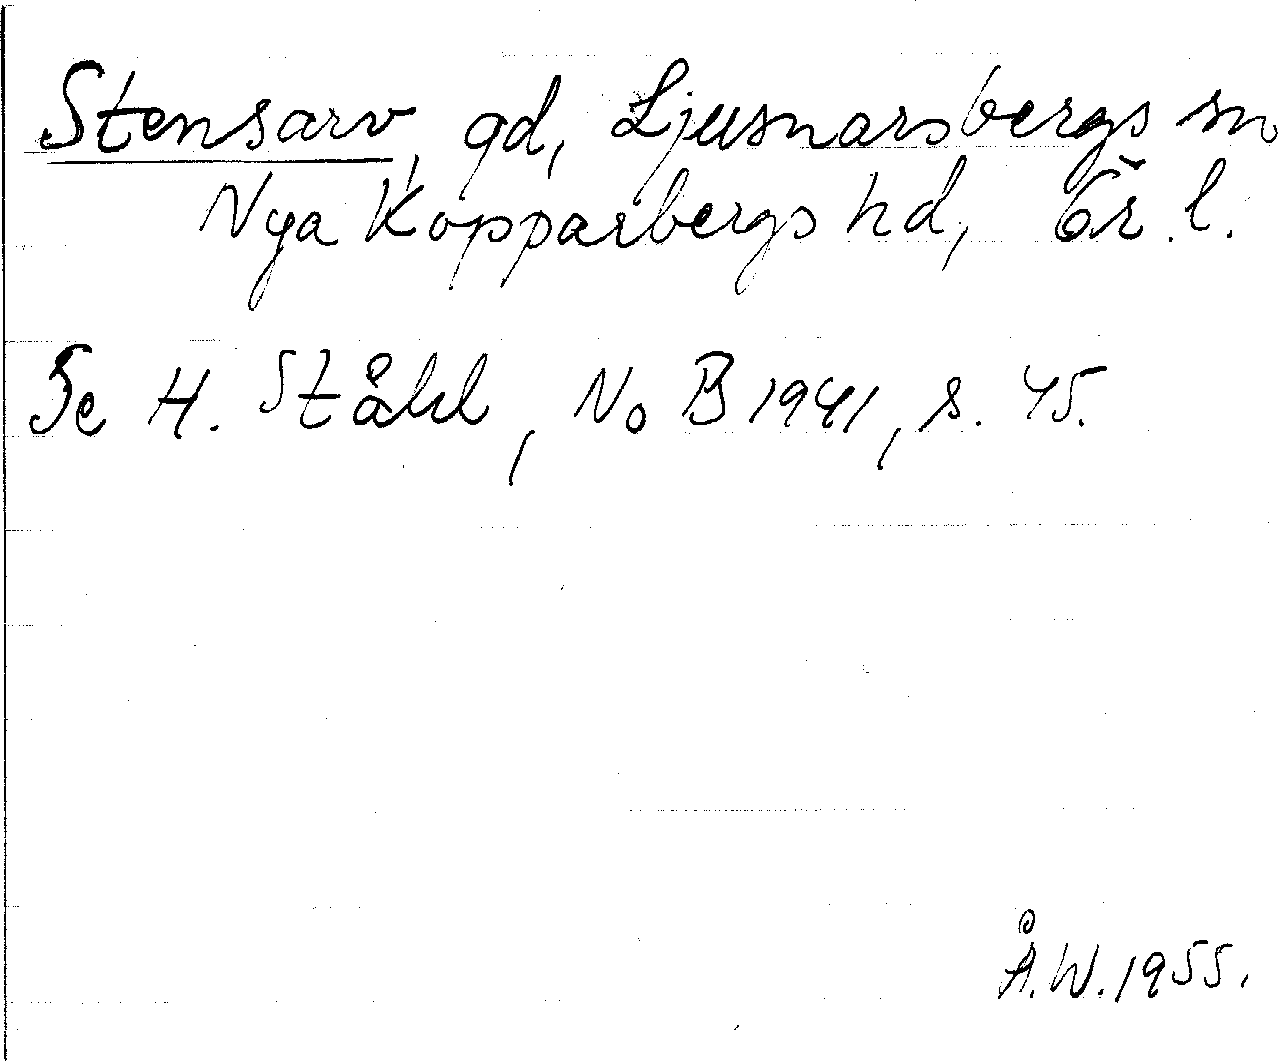 Stensarv, gd, Ljusnarsbergs sn
Nya Kopparbergs hd, Ör. l.
Se H. Ståhl, No B 1941, s. 45.
Å.W. 1955.